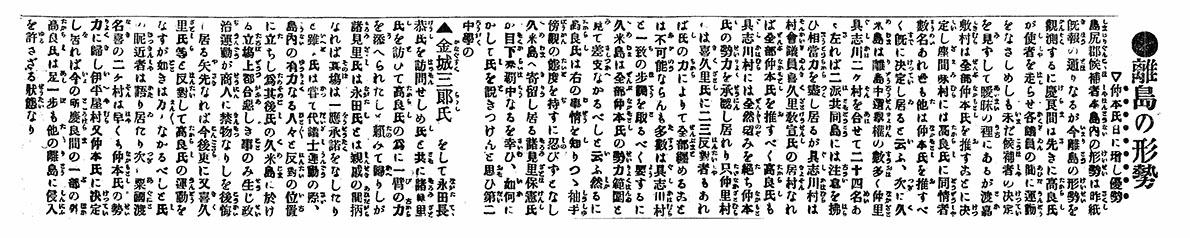 ●離島の形勢
▽仲本氏日に増し優勢
島尻郡候補者本島内の形勢は昨紙
既報の通りなるが今離島の形勢を
觀測するに慶良間は先きに高良氏
が使者を走らせ各議員の間に運動
をなさしめしも未だ候補者の決定
を見ずして曖昧の裡にあるが渡嘉
敷村は全部仲本氏を推すことに決
し座間味村には高良氏に同情者
數名あれ共他は仲本氏を推すべ
く既に決定し居ると云ふ、次に久
米島は離島中選擧權の數多く仲里
具志川二ヶ村を合せて二十四名あ
と左れば二派共同島には注意を拂
ひ相當の力を盡し居るが具志川村は
村會議員喜久里教宣氏の居村なれ
ば全部仲本氏を推すべく高良氏も
具志川村には全然望みを絶ち仲本
氏の勢力を承認し居れり只仲里村
には喜久里氏に二三反對者もあれ
ば氏の力によりて全部纒めること
は不可能ならんも多數は具志川村
と一致の歩調を取るべく要するに
久米島は全部仲本氏の勢力範圍と
見て差支なかるべしと云ふ然るに
高良氏は右の事情を知りつゝ袖手
傍觀の態度を持すに忍びずとなし
久米島へ寄留し居る諸見里保憲氏
が目下來覇中なるを幸ひ、如何に
かして氏を説きつけんと思ひ第二
中學の
▲金城三郎氏 をして永田長
恭氏を訪問せしめ氏と共に諸見里
氏を訪ひて高良氏の爲に一臂の力
を添へられたしと頼みて歸りしが
諸見里氏は永田氏とは親戚の間柄
なれば其場は一應承諾をなしたり
と雖も氏は嘗て代議士運動の際、
島内の有力なる人々と反對の位置
に立ちし爲其後氏の久米島に於け
る立場上都合惡しき事のみ生じ政
治運動が商人に禁物なりしを後悔
し居る矢先なれば今後更に又喜久
里氏等と反對して高良氏の運動を
なすが如きは万々なかるべしと氏
の昵近者は語り居れり次に粟國渡
名喜の二ヶ村は早くも仲本氏の勢
力に歸し伊平屋村又仲本氏に決定
し居れば今の所慶良間の一部の外
高良氏は一歩も他の離島に侵入
を許さざる状態なり